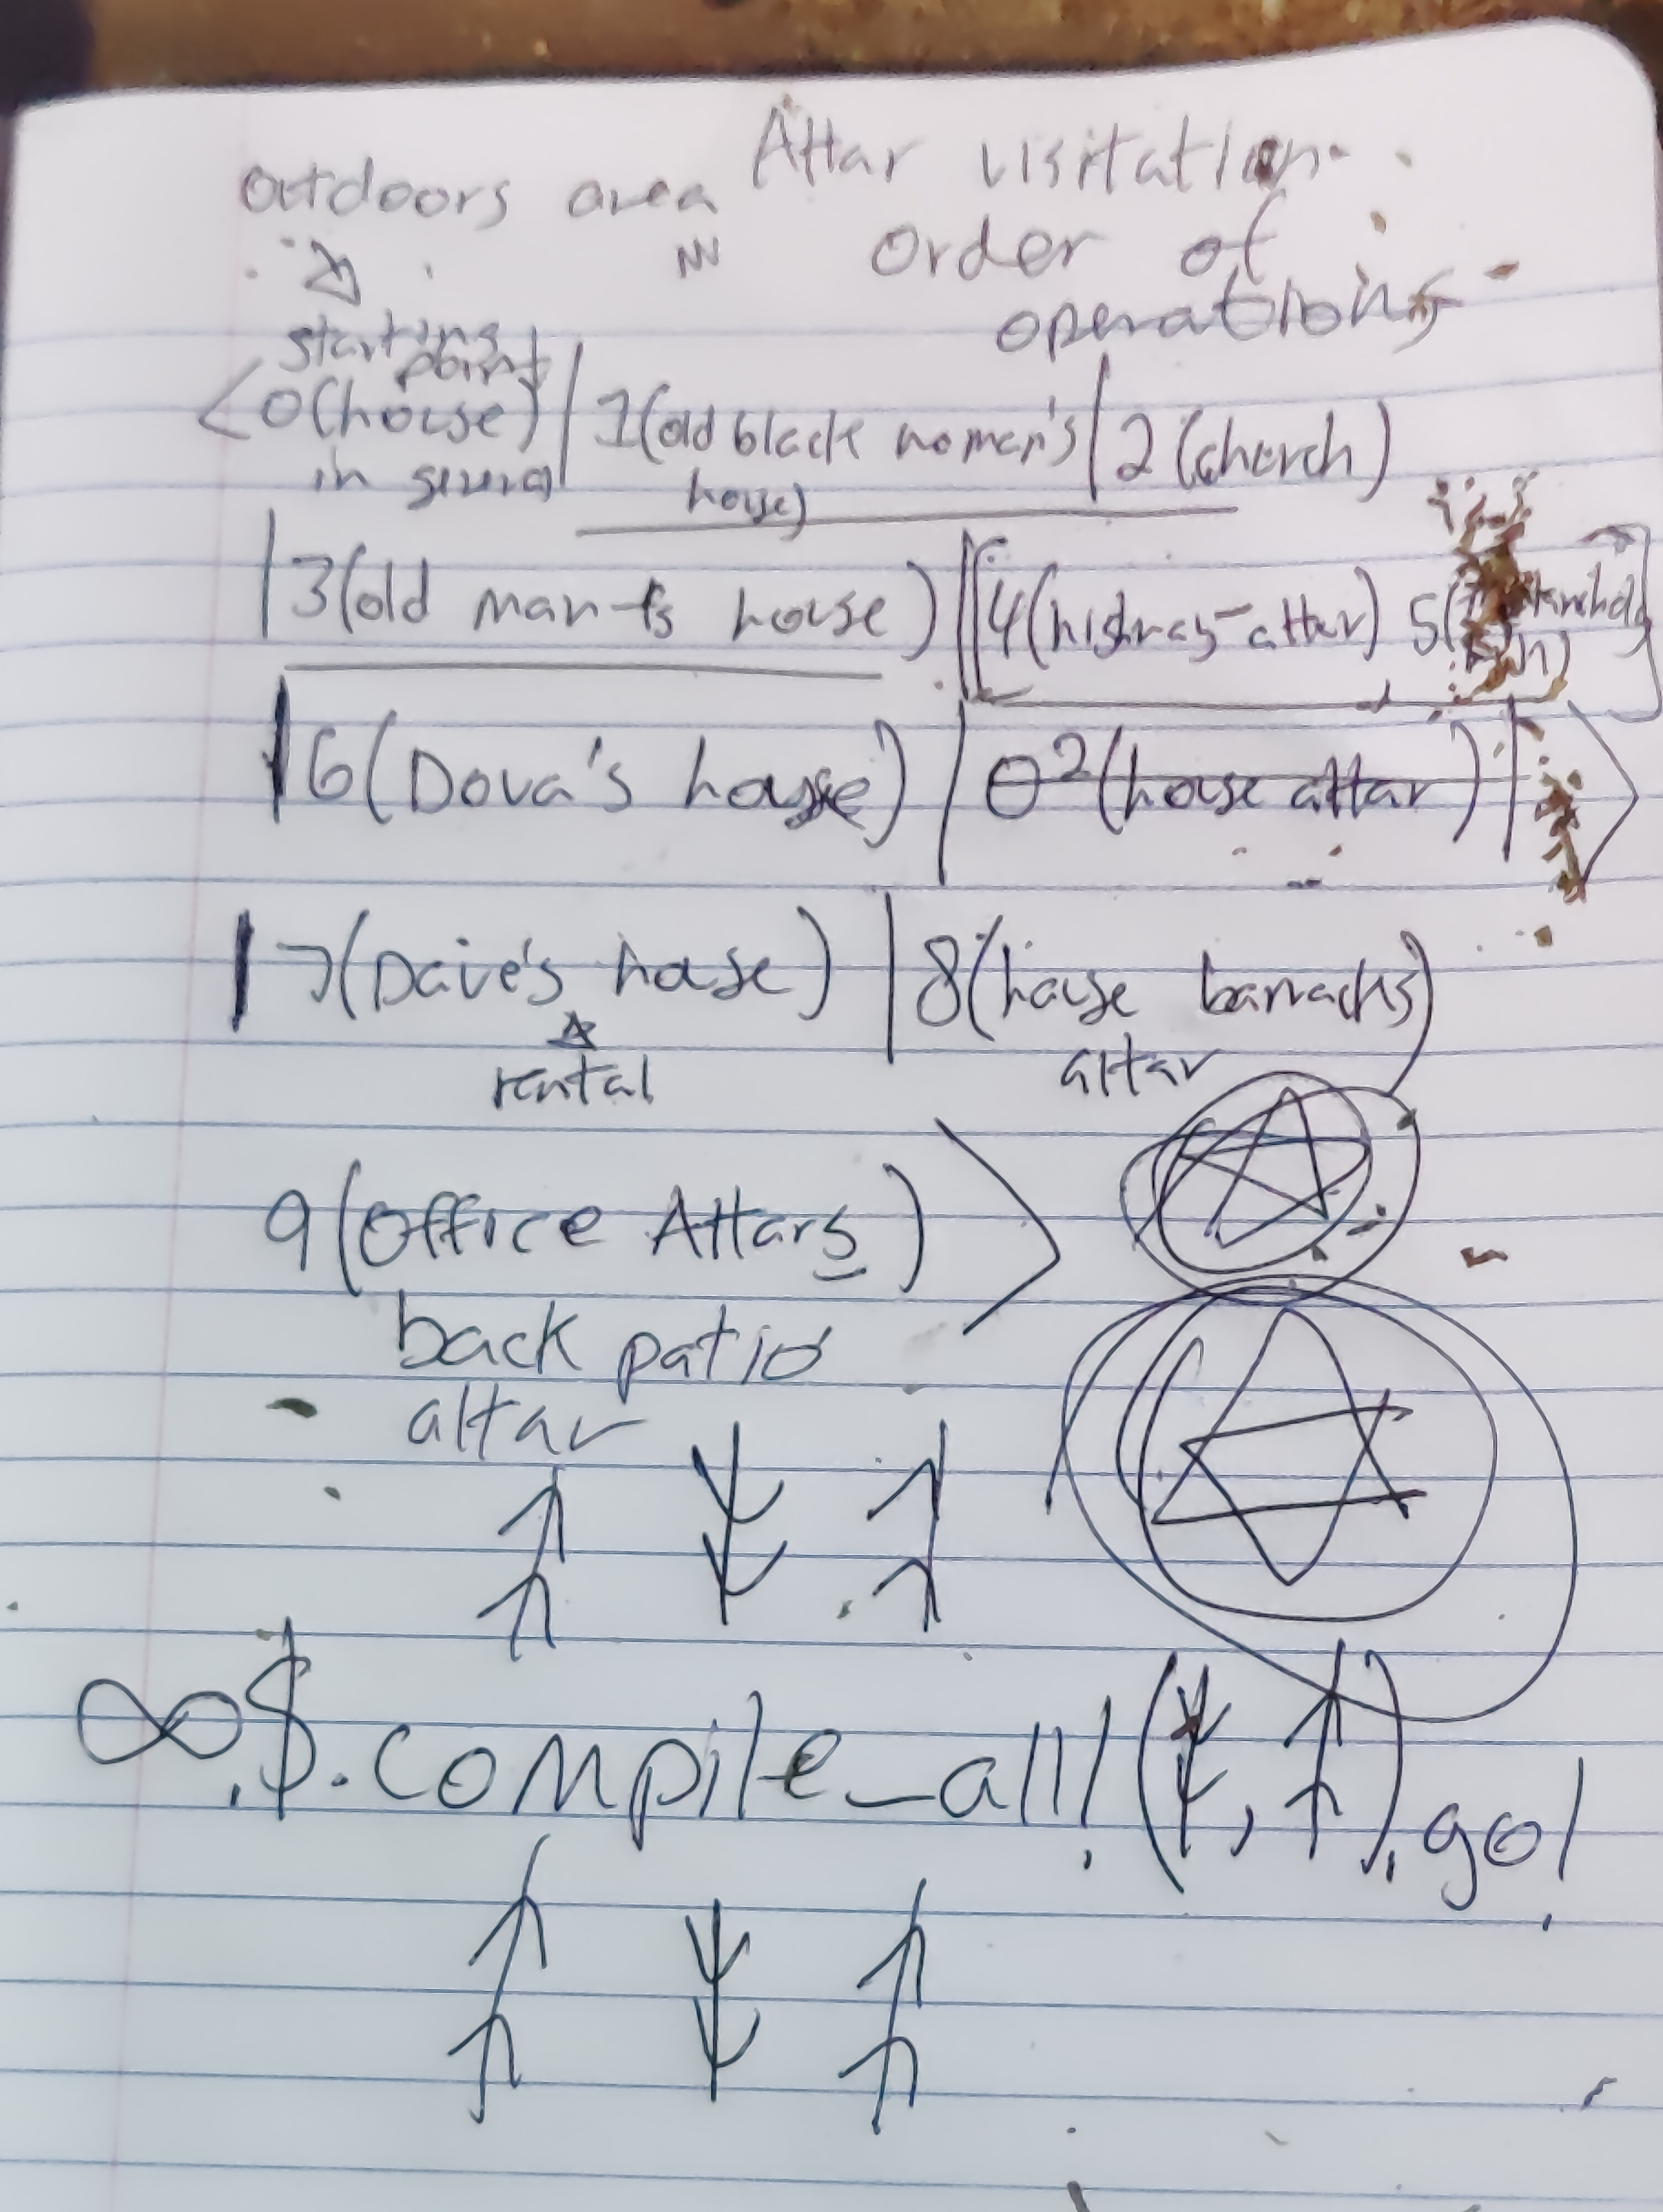 Altar visitation
outdoors area
order of
operations
starting
point
<0(house) | 1(old black women's | 2(church)
in general house)
|3(old man's house) || [4(highway altar) 5(
|6(Dova's house) | θ²(house altar) | >
|7(Dave's house) | 8(house barracks)
rental altar
9(Office Altars) >
back patio
altar
↑ ↓ ↑
∞.$.compile_all!(↓, ↑).go!
↑ ↓ ↑